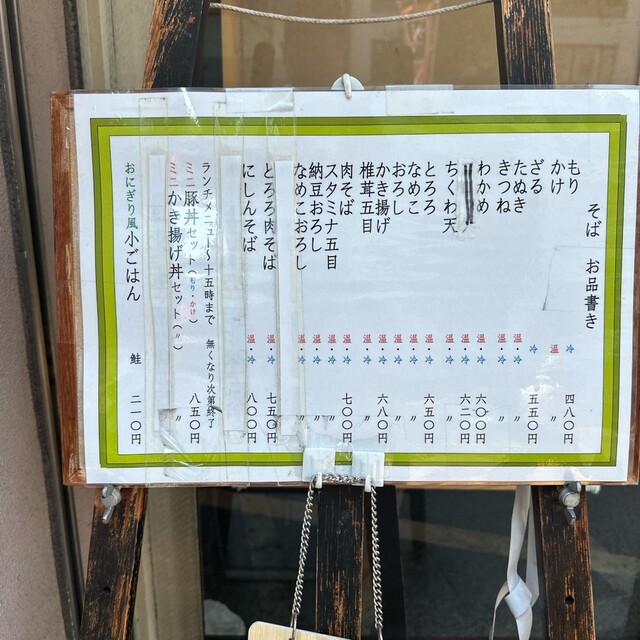 そば お品書き
もり 冷 四八〇円
かけ 温 〃
ざる 冷 五五〇円
たぬき 温・冷 〃
きつね 温・冷 〃
わかめ 温・冷 六〇〇円
ちくわ天 温・冷 六二〇円
とろろ 温・冷 六五〇円
なめこ 温・冷 〃
おろし 温・冷 〃
かき揚げ 温・冷 六八〇円
椎茸五目 温・冷 〃
肉そば 温・冷 七〇〇円
スタミナ五目 温・冷 〃
納豆おろし 温・冷 〃
なめこおろし 温・冷 〃
とろろ肉そば 温・冷 七五〇円
にしんそば 温・冷 八〇〇円
ランチメニュー～十五時まで 無くなり次第終了
ミニ豚丼セット(もり・かけ) 八五〇円
ミニかき揚げ丼セット(〃) 〃
おにぎり風小ごはん 鮭 二一〇円